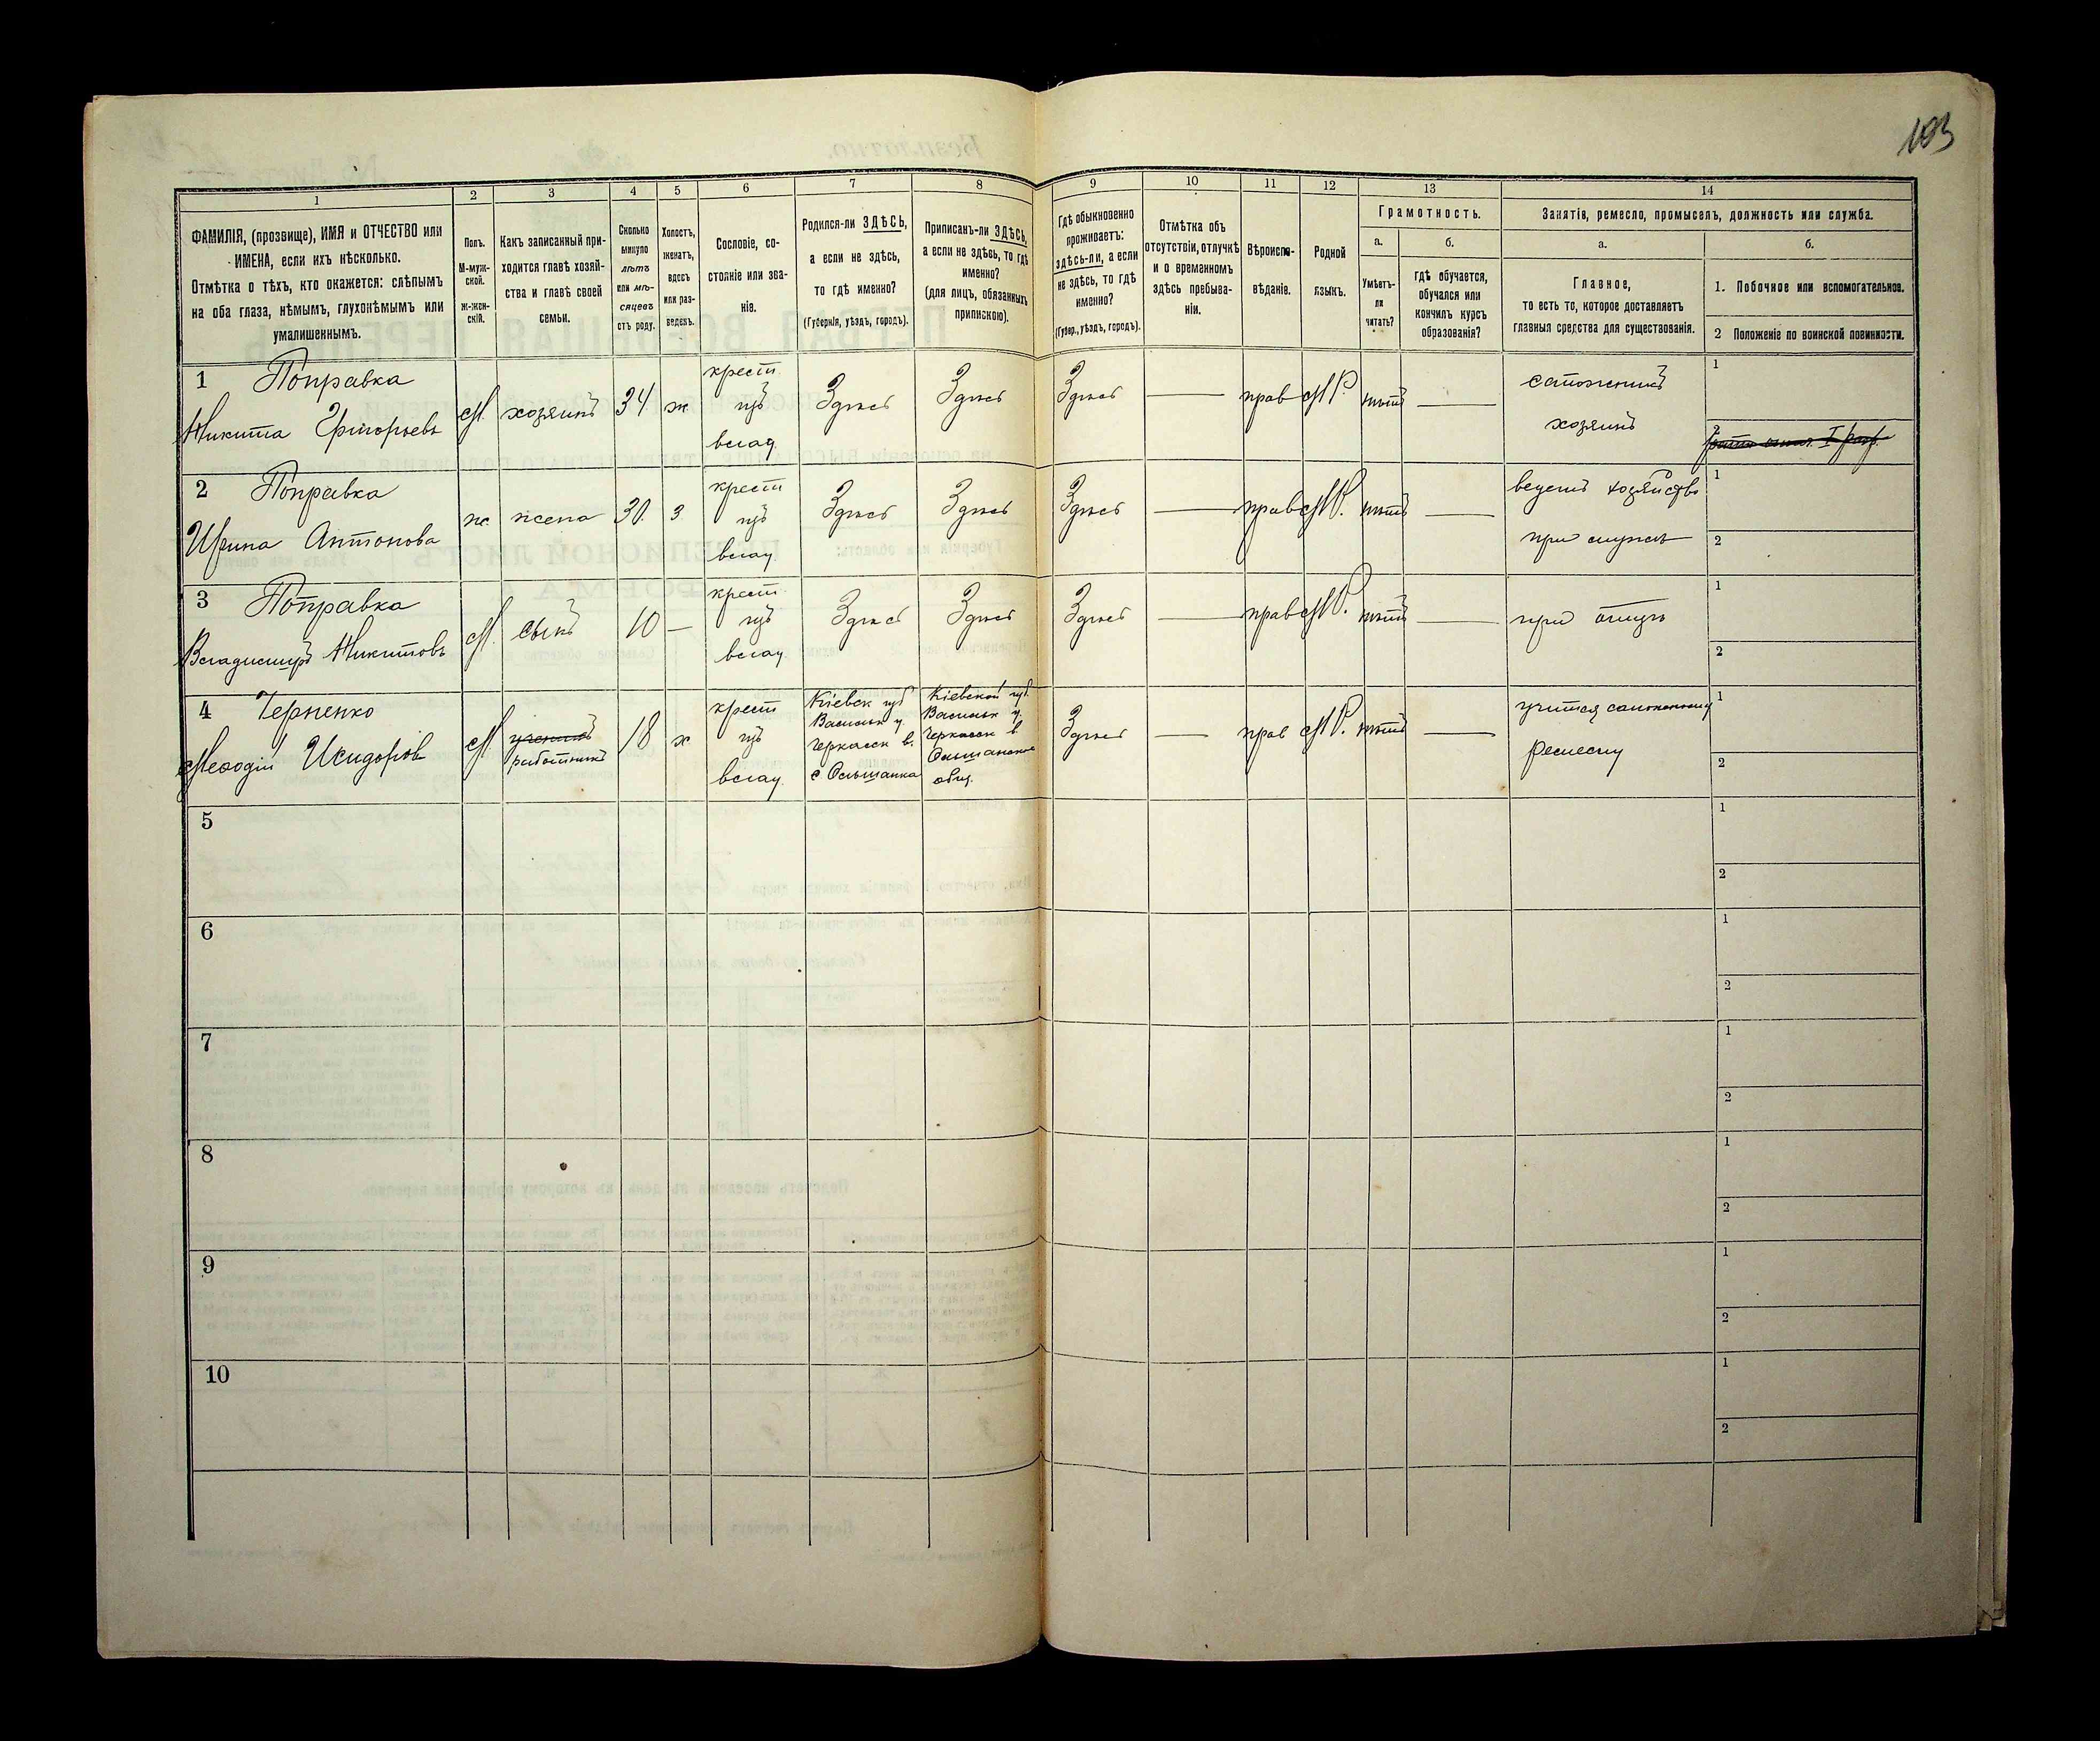 103
1 2 3 4 5 6 7 8 9 10 11 12 13 14
ФАМИЛІЯ, (прозвище), ИМЯ и ОТЧЕСТВО или
ИМЕНА, если ихъ нѣсколько.
Отмѣтка о тѣхъ, кто окажется: слѣпымъ
на оба глаза, нѣмымъ, глухонѣмымъ или
умалишеннымъ.
Полъ.
М-муж-
ской.
Ж-жен-
скій.
Какъ записанный при-
ходится главѣ хозяй-
ства и главѣ своей
семьи.
Сколько
минуло
лѣтъ
или мѣ-
сяцевъ
отъ роду.
Холостъ,
женатъ,
вдовъ
или раз-
веденъ.
Сословіе, со-
стояніе или зва-
ніе.
Родился-ли ЗДѢСЬ,
а если не здѣсь,
то гдѣ именно?
(Губернія, уѣздъ, городъ).
Приписанъ-ли ЗДѢСЬ,
а если не здѣсь, то гдѣ
именно?
(для лицъ, обязанныхъ
припискою).
Гдѣ обыкновенно
проживаетъ:
здѣсь-ли, а если
не здѣсь, то гдѣ
именно?
(Губер., уѣздъ, городъ).
Отмѣтка объ
отсутствіи, отлучкѣ
и о временномъ
здѣсь пребыва-
ніи.
Вѣроиспо-
вѣданіе.
Родной
языкъ.
Грамотность.
а.
Умѣетъ-
ли
читать?
б.
гдѣ обучается,
обучался или
кончилъ курсъ
образованія?
Занятіе, ремесло, промыселъ, должность или служба.
а.
Главное,
то есть то, которое доставляетъ
главныя средства для существованія.
б.
1. Побочное или вспомогательное.
2 Положеніе по воинской повинности.
1 Поправка
Никита Григорьевъ
М. хозяинъ 34 ж
крест
изъ
влад.
Здѣсь Здѣсь Здѣсь — прав М Р. нѣтъ —
сапожникъ
хозяинъ
1
2
2 Поправка
Ирина Антонова
ж. жена 30. з
крест
изъ
влад.
Здѣсь Здѣсь Здѣсь — прав М Р. нѣтъ —
ведетъ хозяйство
при мужѣ
1
2
3 Поправка
Владиміръ Никитовъ
М. сынъ 10 —
крест
изъ
влад.
Здѣсь Здѣсь Здѣсь — прав М Р. нѣтъ —
при отцѣ
1
2
4 Черненко
Мефодій Исидоров
М. ученикъ
работникъ
18 х
крест
изъ
влад.
Кіевск губ
Васильк у.
Черкасск в.
с Ольшанка
Кіевской губ.
Васильк у.
Черкасск в
Ольшанское
общ.
Здѣсь — прав М Р. нѣтъ —
учится сапожному
ремеслу
1
2
5
1
2
6
1
2
7
1
2
8
1
2
9
1
2
10
1
2